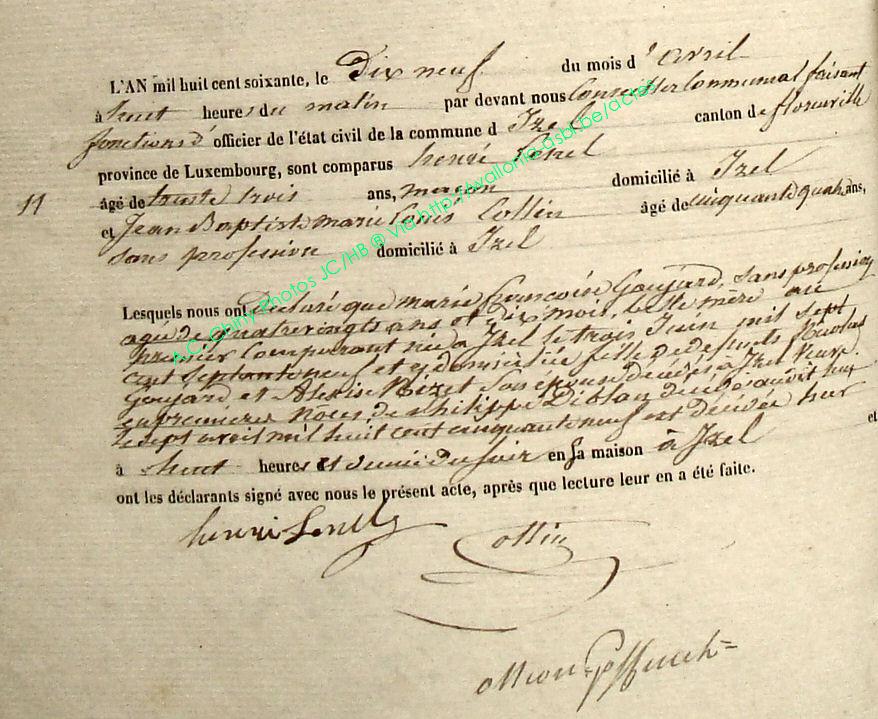 L'AN mil huit cent soixante, le Dix neuf du mois d'avril
à huit heures du matin par devant nous Conseiller Communal faisant
fonctions d'officier de l'état civil de la commune d Izel canton de florenville
province de Luxembourg, sont comparus henri
11
âgé de trente trois ans, maçon domicilié à Izel
et Jean Baptiste marie Louis Collin âgé de cinquante quatre ans,
sans profession domicilié à Izel
Lesquels nous ont déclaré que marie françoise Goujard, sans profession
agée de quatrevingts ans et dix mois, belle mère au
premier Comparant née à Izel le trois Juin mil sept
cent septante neuf et y domiciliée fille de defunts Nicolas
Goujard et Alexise Rozet son épouse décédés à Izel veuve
en premières Noces de philippe décédé audit lieu
le sept avril mil huit cent cinquante neuf est décédée hier
à huit heures et demie du soir en sa maison à Izel et
ont les déclarants signé avec nous le présent acte, après que lecture leur en a été faite.
henri
Collin
A.C. Chiny Photos JC/HB ® Via http://wallonia-asbl.be/actes